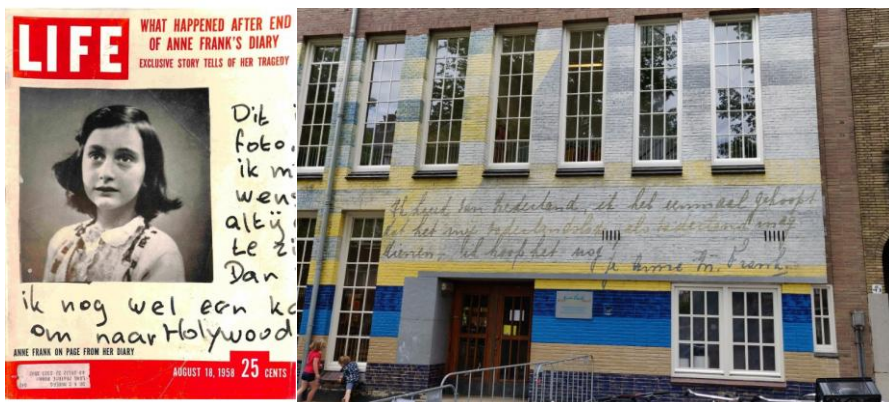 LIFE
WHAT HAPPENED AFTER END
OF ANNE FRANK'S DIARY
EXCLUSIVE STORY TELLS OF HER TRAGEDY
Dit i
foto.
ik m
wens
altij
te zi
Dan
ik nog wel een ka
om naar Holywood
ANNE FRANK ON PAGE FROM HER DIARY
AUGUST 18, 1958 25 CENTS
Ik houd van Nederland, ik heb eenmaal gehoopt
dat het mij vaderlandsloze vaderland mag
dienen, ik hoop het nog
Je Anne M. Frank